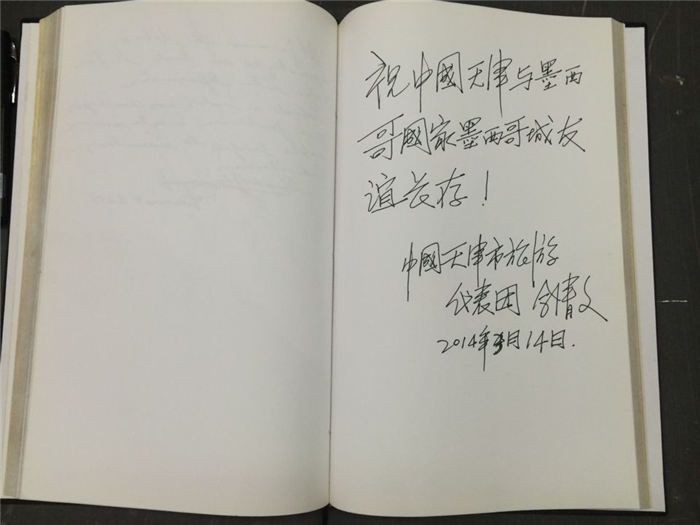 祝中國天津与墨西
哥國家墨西哥城友
谊长存！
中國天津市旅游
代表团
2014年5月14日.